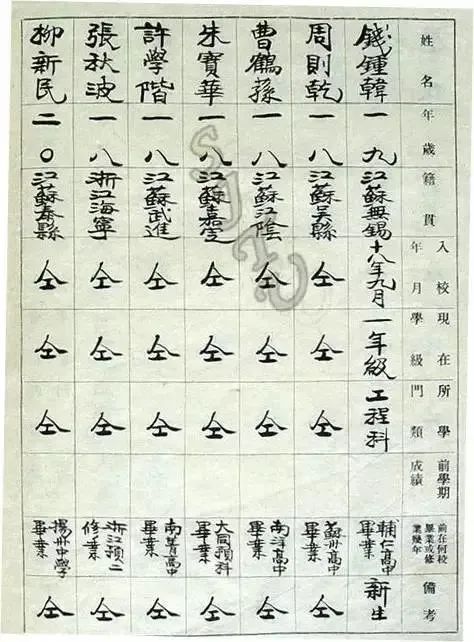 姓名 年歲 籍貫 入校年月 現在學級 所學門類 前學期成績 前在何校畢業或修業幾年 備考
錢鍾韓 一九 江蘇無錫 十八年九月 一年級 工程科 輔仁高中畢業 新生
周則乾 一八 江蘇吳縣 仝 仝 仝 蘇州高中畢業 仝
曹鶴孫 一八 江蘇江陰 仝 仝 仝 南洋高中畢業 仝
朱寶華 一八 江蘇嘉定 仝 仝 仝 大同預科畢業 仝
許學階 一八 江蘇武進 仝 仝 仝 南菁高中畢業 仝
張秋波 一八 浙江海寧 仝 仝 仝 浙江預二修業 仝
柳新民 二〇 江蘇泰縣 仝 仝 仝 揚州中學畢業 仝